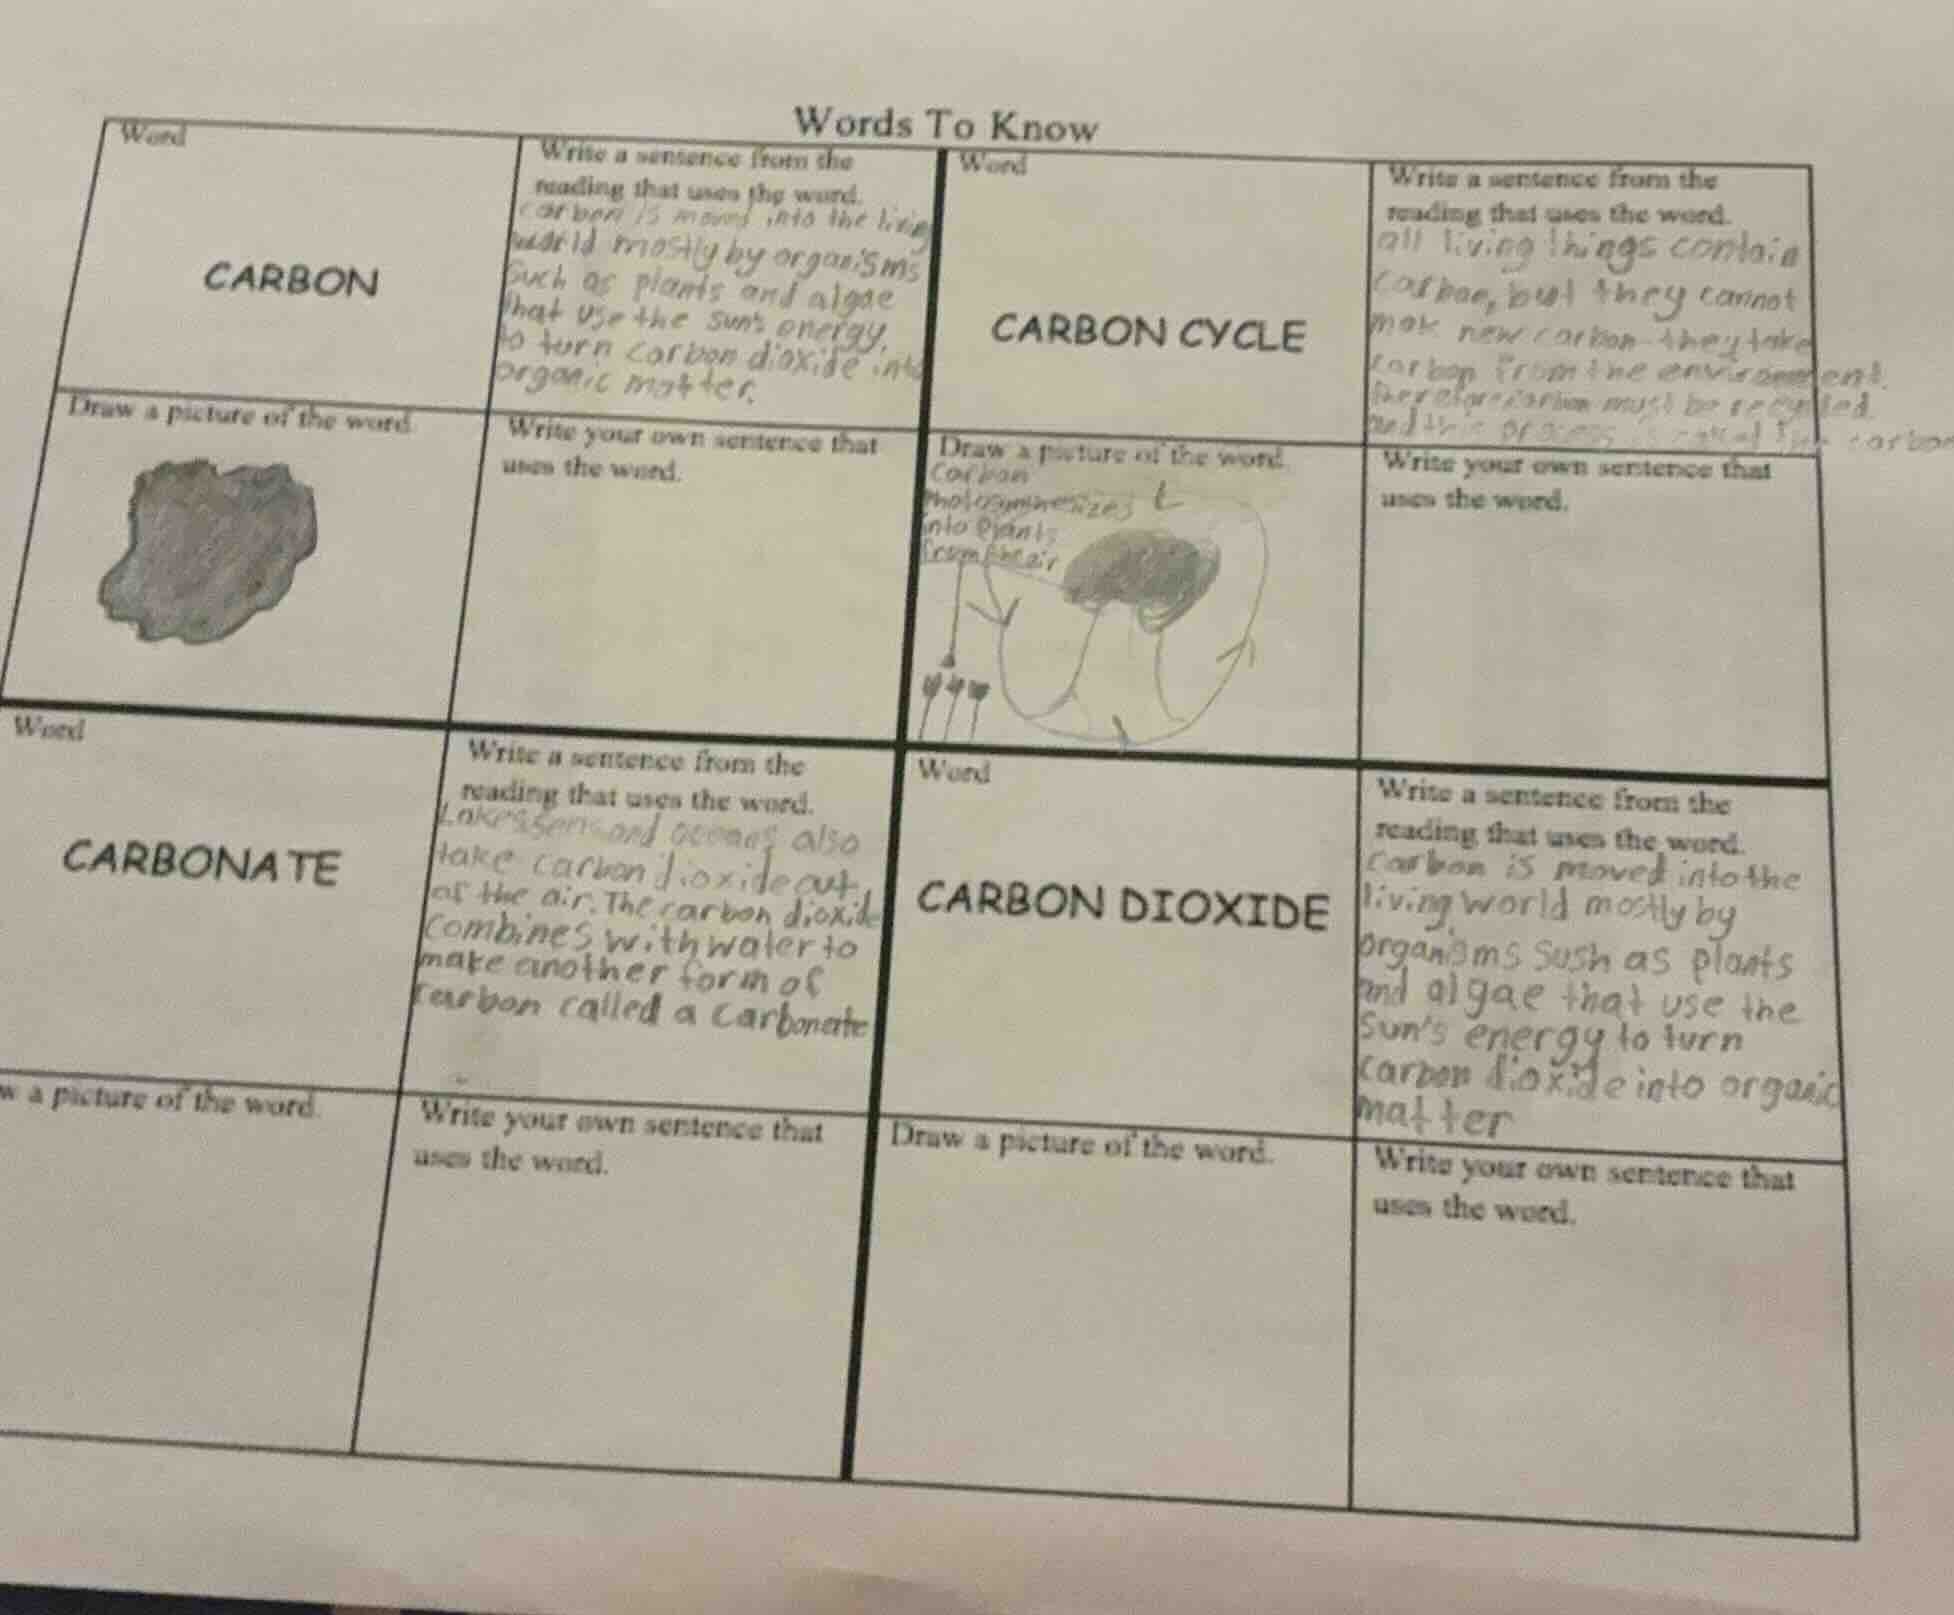 Words To Know
Word
CARBON
Write a sentence from the
reading that uses the word.
carbon is moved into the living
world mostly by organisms
such as plants and algae
that use the sun's energy,
to turn carbon dioxide into
organic matter.
Draw a picture of the word.
Write your own sentence that
uses the word.
Word
CARBON CYCLE
Write a sentence from the
reading that uses the word.
all living things contain
carbon, but they cannot
mak new carbon they take
carbon from the environment.
Therefore carbon must be recycled
and this process is called the carbon
Draw a picture of the word.
Carbon
into Plants
from the air
Write your own sentence that
uses the word.
Word
CARBONATE
Write a sentence from the
reading that uses the word.
Lakes seas and oceans also
take carbon dioxide out
of the air. The carbon dioxide
combines with water to
make another form of
carbon called a carbonate
w a picture of the word.
Write your own sentence that
uses the word.
Word
CARBON DIOXIDE
Write a sentence from the
reading that uses the word.
carbon is moved into the
living world mostly by
organisms sush as plants
and algae that use the
sun's energy to turn
carbon dioxide into organic
matter
Draw a picture of the word.
Write your own sentence that
uses the word.